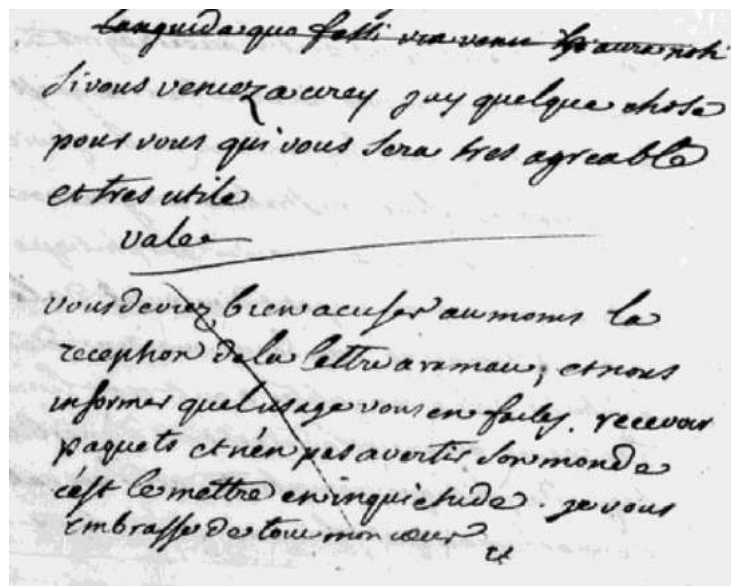 languida quo fessi vix venit
si vous venez a cirey jay quelque chose
pour vous qui vous sera tres agreable
et tres utile
vale
vous devriez bien acuser au moins la
reception de la lettre a ramau, et nous
informer quel usage vous en faites. recevoir
paquets et n'en pas avertir son monde
c'est le mettre en inquietude. je vous
embrasse de tout mon cœur